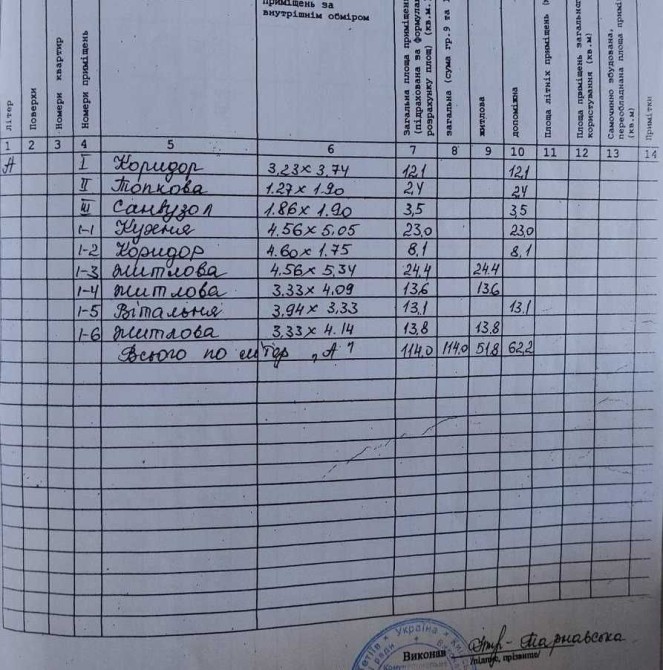 приміщень за
внутрішнім обміром
Літер
Поверхи
Номери квартир
Номери приміщень
Загальна площа приміщень
(підрахована за формулами
розрахунку площ) (кв.м.)
загальна (сума гр.9 та 1
житлова
допоміжна
Площа літніх приміщень
Площа приміщень загального
користування (кв.м)
Самочинно збудована,
переобладнана площа
(кв.м)
Примітки
1 2 3 4 5 6 7 8 9 10 11 12 13 14
А I Коридор 3,23 x 3,74 12,1 12,1
II Топкова 1.27 x 1.90 2,4 2,4
III Санвузол 1.86 x 1.90 3,5 3,5
1-1 Кухня 4.56 x 5,05 23,0 23,0
1-2 Коридор 4.60 x 1.75 8,1 8,1
1-3 житлова 4,56 x 5,34 24,4 24.4
1-4 житлова 3.33 x 4.09 13,6 13,6
1-5 Вітальня 3,94 x 3,33 13,1 13,1
1-6 житлова 3,33 x 4.14 13,8 13,8
Всього по літер „А" 114,0 114,0 51,8 62,2
Україна
Виконав Тарнавська
/підпис, прізвище/